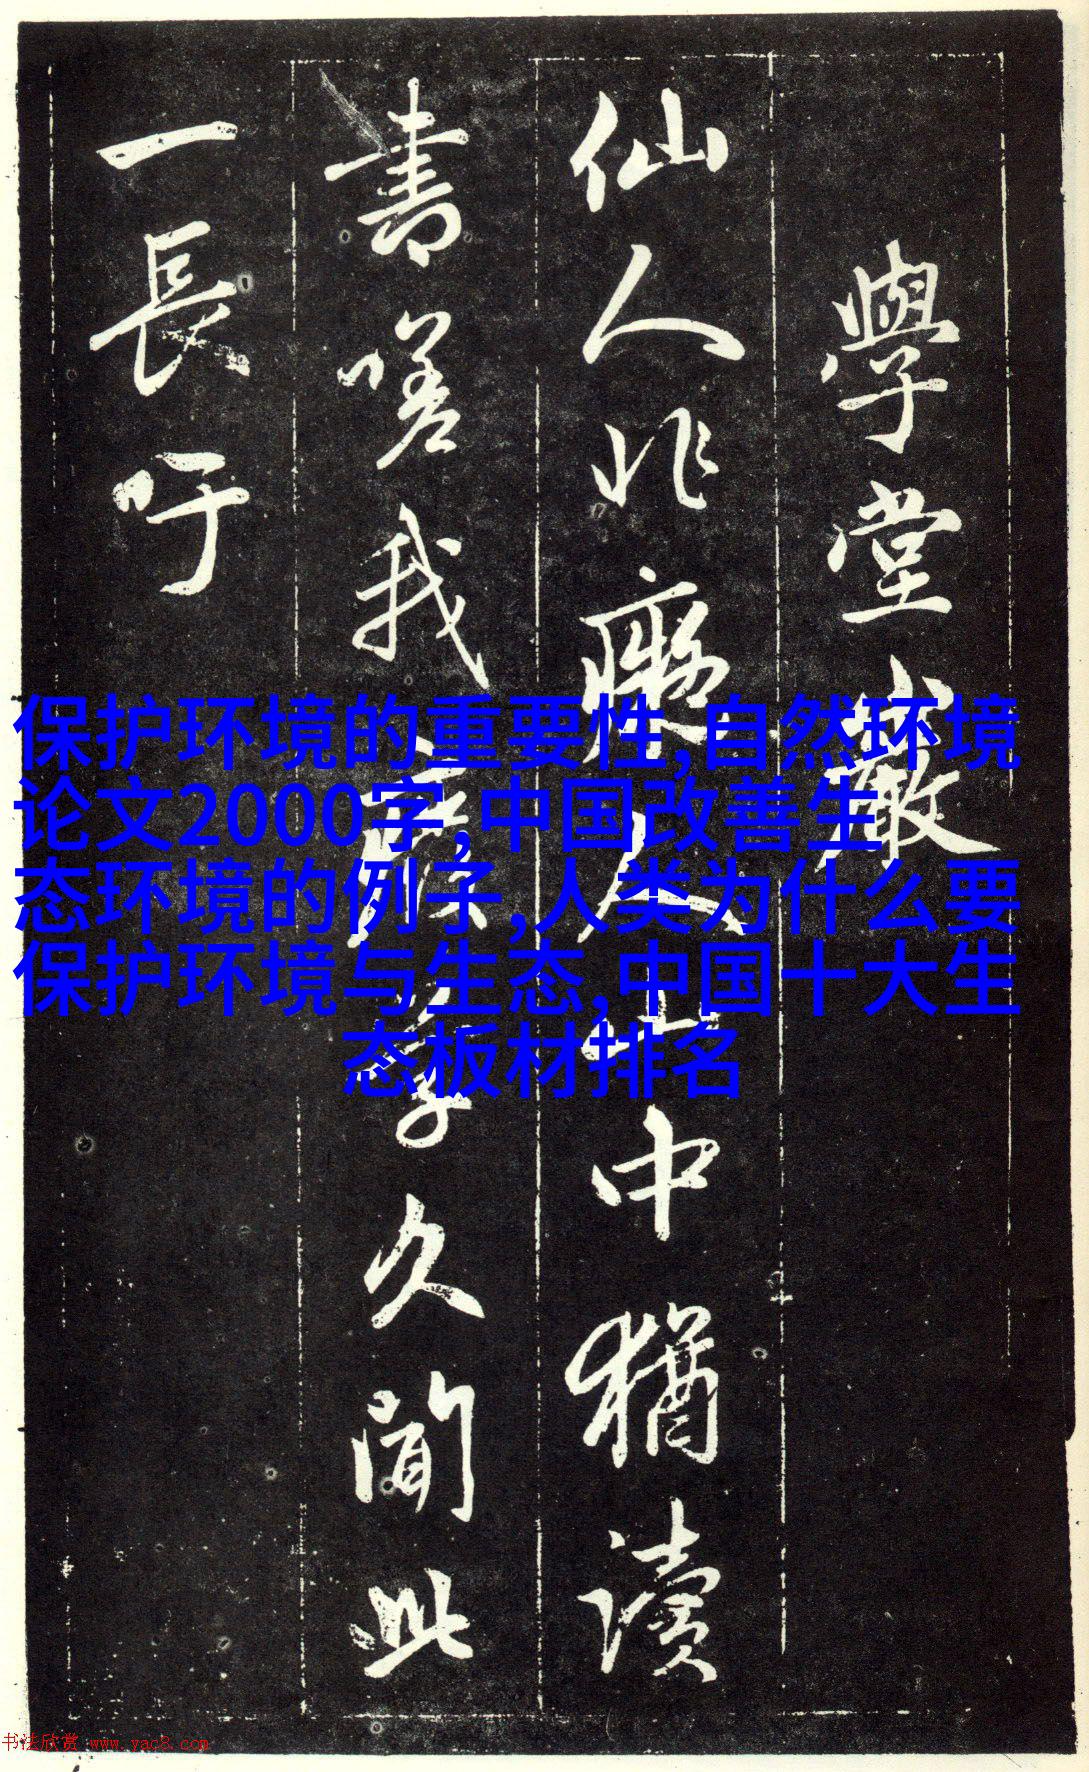 學堂巖
仙人非癯人山中猶讀
書嗟我廢學久聞此
一長吁
保护环境的重要性,自然环境
论文2000字,中国改善生
态环境的例子,人类为什么要
保护环境与生态,中国十大生
态板材排名
书法欣赏 www.yac8.com